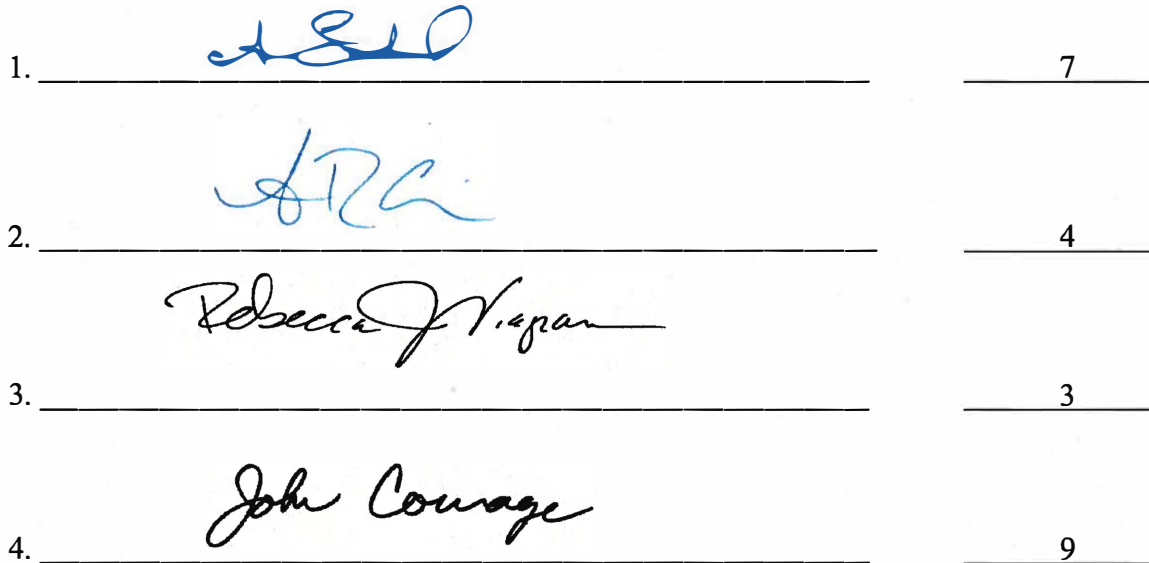 1. 7
2. 4
Rebecca J. Viagran
3. 3
John Courage
4. 9